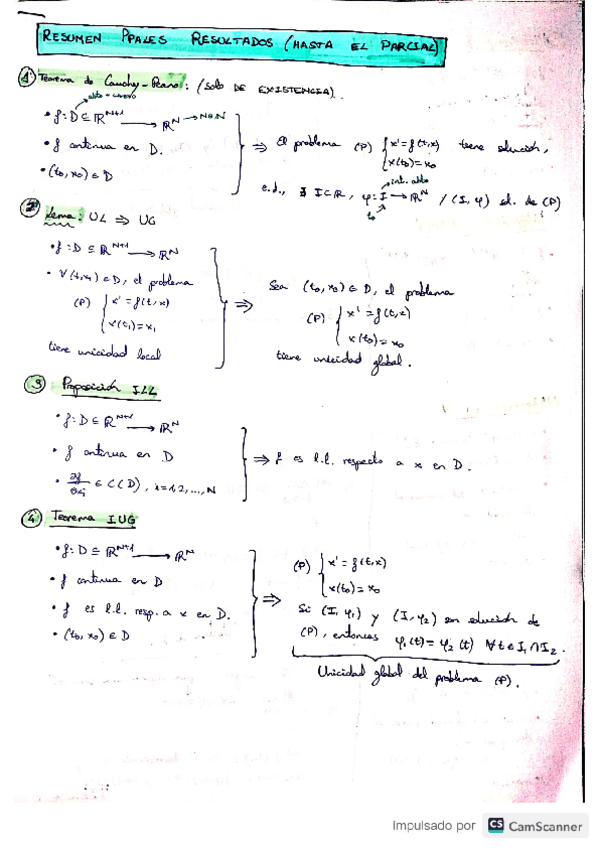 RESUMEN PPALES RESULTADOS (HASTA EL PARCIAL)
1 Teorema de Cauchy-Peano: (SOLO DE EXISTENCIA).
• f: D ⊆ ℝᴺ⁺¹ → ℝᴺ → N∈ℕ
• f continua en D.
• (t₀, x₀) ∈ D
⇒ El problema (P) { x' = f(t,x) tiene solución,
x(t₀) = x₀
e.d., ∃ I⊂ℝ, φ: I → ℝᴺ / (I, φ) sol. de (P)
int. abto
t₀
2 Lema: UL ⇒ UG
• f: D ⊆ ℝᴺ⁺¹ → ℝᴺ
• ∀(t₁,x₁) ∈ D, el problema
(P) { x' = f(t,x)
x(t₁) = x₁
tiene unicidad local
⇒ Sea (t₀, x₀) ∈ D, el problema
(P) { x' = f(t,x)
x(t₀) = x₀
tiene unicidad global.
3 Proposición ILL
• f: D ⊆ ℝᴺ⁺¹ → ℝᴺ
• f continua en D
• ∈ C(D), i=1,2,...,N
⇒ f es l.l. respecto a x en D.
4 Teorema IUG
• f: D ⊆ ℝᴺ⁺¹ → ℝᴺ
• f continua en D
• f es l.l. resp. a x en D.
• (t₀, x₀) ∈ D
⇒ (P) { x' = f(t,x)
x(t₀) = x₀
Si (I, φ₁) y (I, φ₂) son solución de
(P), entonces φ₁(t) = φ₂(t) ∀t∈I₁∩I₂.
Unicidad global del problema (P).
Impulsado por CS CamScanner